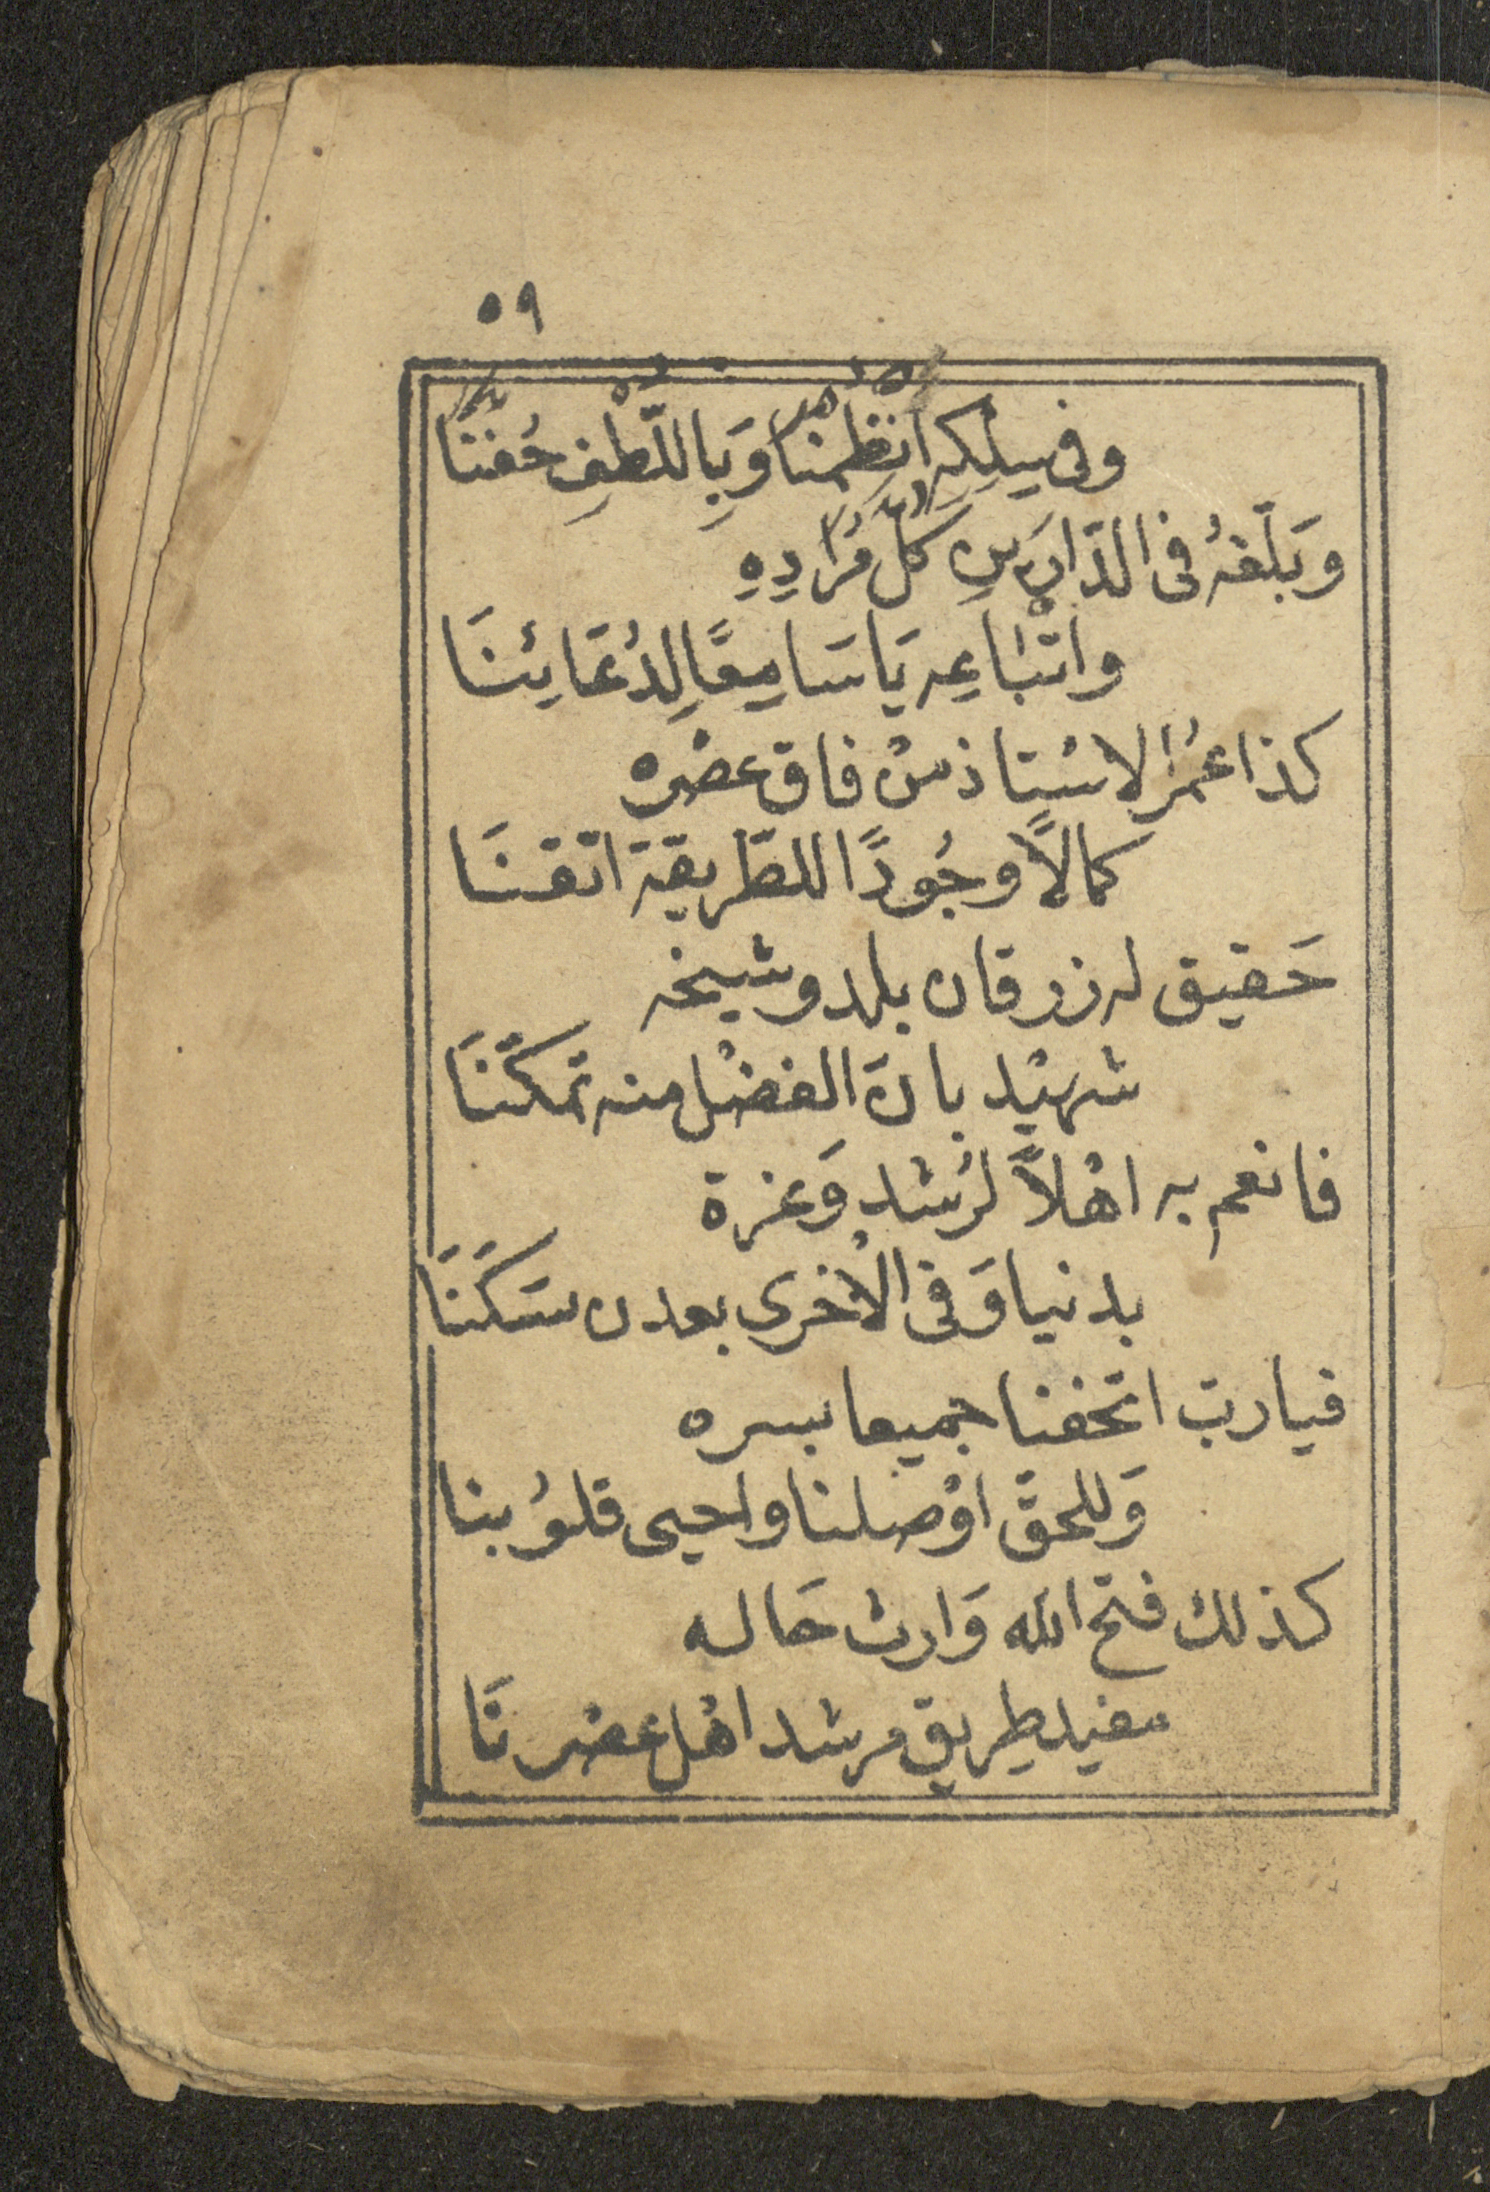 ٥٩
وفى سِلكِهِ انظِمْنَا وَبِاللّطْفِ حُفنَا
وَبَلّغهُ فى الدّارَينِ كلّ مُرَادِهِ
واتْبَاعِه يَا سَامِعًا لِدُعَائِنَا
كذا عُمَرُ الاسْتاذ منْ فاق عصْره
كمالاً وجُودًا للطّريقة اتقنَا
حَقيق له زرقان بلد وشيخه
شهيْد بانّ الفضْل منه تمكّنَا
فانعم به اهْلاً لرُشدٍ وَعزة
بدنيا وَفى الأخرى بعدن سَكَنَا
فيا ربّ اتحفنا جميعا بسره
وَللحقّ اوْصلنا واحيى قلوُبنا
كذلك فتح الله وَارث حَاله
مفيد طِريق مرشد اهْل عصْرنَا